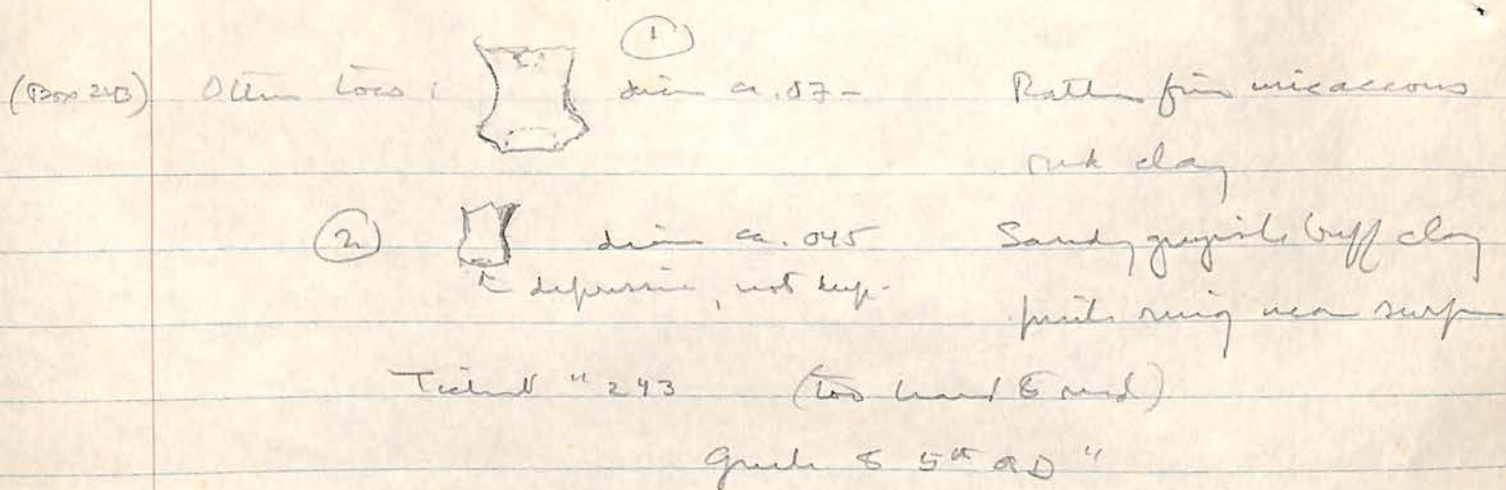 ①
(Box 243) Other toes: diam ca. .07- Rather fine micaceous
pink clay
② diam ca. .045 Sandy greyish buff clay
depression, not deep. pink ring near surface
Ticket "243 (too hard to read)
Greek to 5th AD"